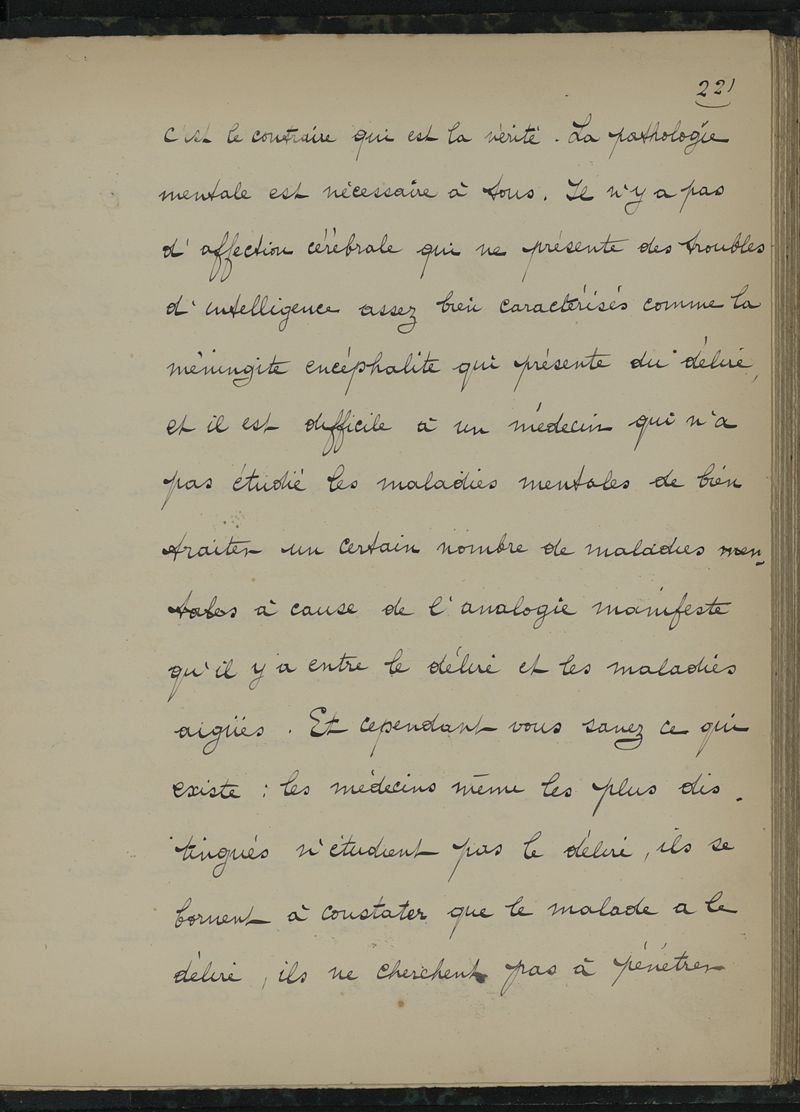 221
c'est le contraire qui est la vérité. La pathologie
mentale est nécessaire à tous. Il n'y a pas
d'affection cérébrale qui ne présente des troubles
d'intelligence assez bien caractérisés comme la
méningite encéphalite qui présente du délire,
et il est difficile à un médecin qui n'a
pas étudié les maladies mentales de bien
traiter un certain nombre de maladies men-
tales à cause de l'analogie manifeste
qu'il y a entre le délire et les maladies
aigües. Et cependant vous savez ce qui
existe : les médecins même les plus dis-
tingués n'étudient pas le délire, ils se
bornent à constater que le malade a le
délire, ils ne cherchent pas à pénétrer